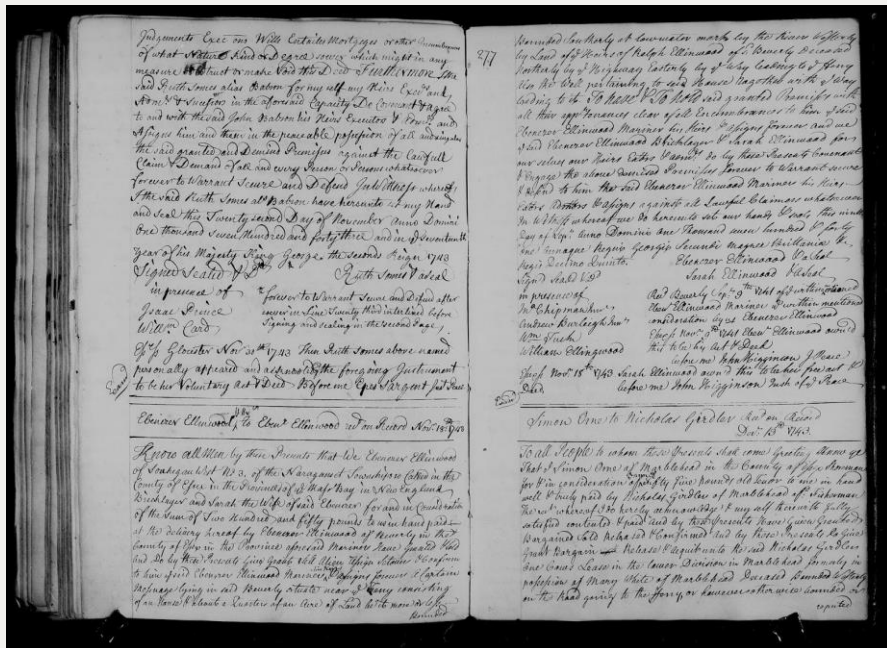 Judgements Exec ons Wills Entailes Mortgages or other Incumbrances
of what Nature Kind or Degree soever which might in any
measure obstruct or make Void this Deed Furthermore I the
said Ruth Somes alias Babson for my self my Heirs Execrs and
Admrs & Successors in the aforesaid Capacity Do Covenant & agree
to and with the said John Babson his Heirs Executors & Admrs and
Assigns him and them in the peaceable possession of all and singular
the said granted and Demised Premises against the Lawfull
Claim & Demand of all and every Person or Persons whatsoever
forever to Warrant Secure and Defend In Witness whereof
I the said Ruth Somes als Babson have hereunto set my Hand
and Seal this Twenty second Day of November Anno Domini
One thousand Seven Hundred and forty three and in ye Seventeenth
Year of his Majesty King George the second Reign 1743
Signed Sealed & DD
Ruth Somes & a seal
in presence of
Isaac Prince
Willm Card
forever to Warrant Secure and Defend after
in Line Twenty third interlined before
Signing and sealing in the second Page
Essex Glocester Novr 1743 Then Ruth Somes above named
personally appeared and acknowledg the foregoing Instrument
to be her Voluntary Act & Deed Before me Epes Sargent Just Peace
Ebenezer Ellinwood to Ebenr Ellinwood on Record Novr 18th 1743
Know all Men by these Presents that We Ebenezer Ellinwood
of Souhegan West No 3. of the Naraganset Townships so Called in the
County of Essex in the Province of ye Massa Bay in New England
Bricklayer and Sarah the Wife of said Ebenezer for and in Consideration
of the Sum of Two Hundred and fifty pounds to us in hand paid
at the delivery hereof by Ebenezer Ellinwood of Beverly in the
County of Essex in the Province aforesaid Mariner Have Granted &
and Do by these Presents Give Grant Sell Alien Assign & Confirm
to him ye said Ebenezer Ellinwood Mariner & assigns forever A Certain
Messuage lying in said Beverly situate near ye Ferry consisting
of an House & about a Quarter of an Acre of Land be it more or less
Bounded
277
Bounded Southerly at lowwater mark by the River Westerly
by Land of ye Heirs of Ralph Ellinwood of sd Beverly Deceased
Northerly by ye Highway Easterly by ye Way leading to ye Ferry
also ye Well pertaining to said House together with ye Way
leading to it To Have & To Hold said granted Premises with
all their appurtenances clear of all Encumbrances to him ye said
Ebenezer Ellinwood Mariner his Heirs & assigns forever and we
ye said Ebenezer Ellinwood Bricklayer & Sarah Ellinwood for
our selves our Heirs Exters & admrs do by these Presents Covenant
& Engage the above demised Premises forever to Warrant secure
& defend to him the said Ebenezer Ellinwood Mariner his Heirs
Exters Admtors & assigns against all Lawful Claimes whatsoever
In Witness whereof we do hereunto set our hands & seals this ninth
Day of Sepr Anno Dominie One Thousand seven hundred & forty
one Annoque Regni Georgii Secundi Magnae Brittania &c
Regis Decimo Quinto
Ebenezer Ellinwood & a Seal
Sarah Ellinwood & a Seal
Signd Seald & DD
in presence of
Chipman
Andrew Burleigh Junr
Wm Tuck
William Ellingwood
Recd Beverly Sepr 9th 1741 of ye within mentioned
Ebenr Ellinwood Mariner ye within mentioned
consideration by us Ebenezer Ellinwood
Essex Novr 9th 1741 Ebenr Ellinwood owned
this to be his Act & Deed
before me John Higginson J Peace
Essex Novr 18th 1743 Sarah Ellinwood ownd this to be her free act &
Deed before me John Higginson Just of ye Peace
Simon Orne to Nicholas Girdler on Record
Decr 13th 1743
To all People to whom these Presents shall come Greeting Know ye
That I Simon Orne of Marblehead in the County of Essex
for & in consideration of Fifty five pounds old tenor to me in hand
well & truly paid by Nicholas Girdler of Marblehead Fisherman
The rect whereof I do hereby acknowledge & my self therewith fully
satisfied contented & paid and by these Presents Have Given Granted
Bargained Sold released & Confirmed and by these Presents Do Give
Grant Bargain Sell Release & acquit unto the said Nicholas Girdler
one Cows Lease in the lower Division in Marblehead formerly in
possession of Mary White of Marblehead Deceased Bounded Westerly
on the Road going to the Ferry or however otherwise bounded or
reputed